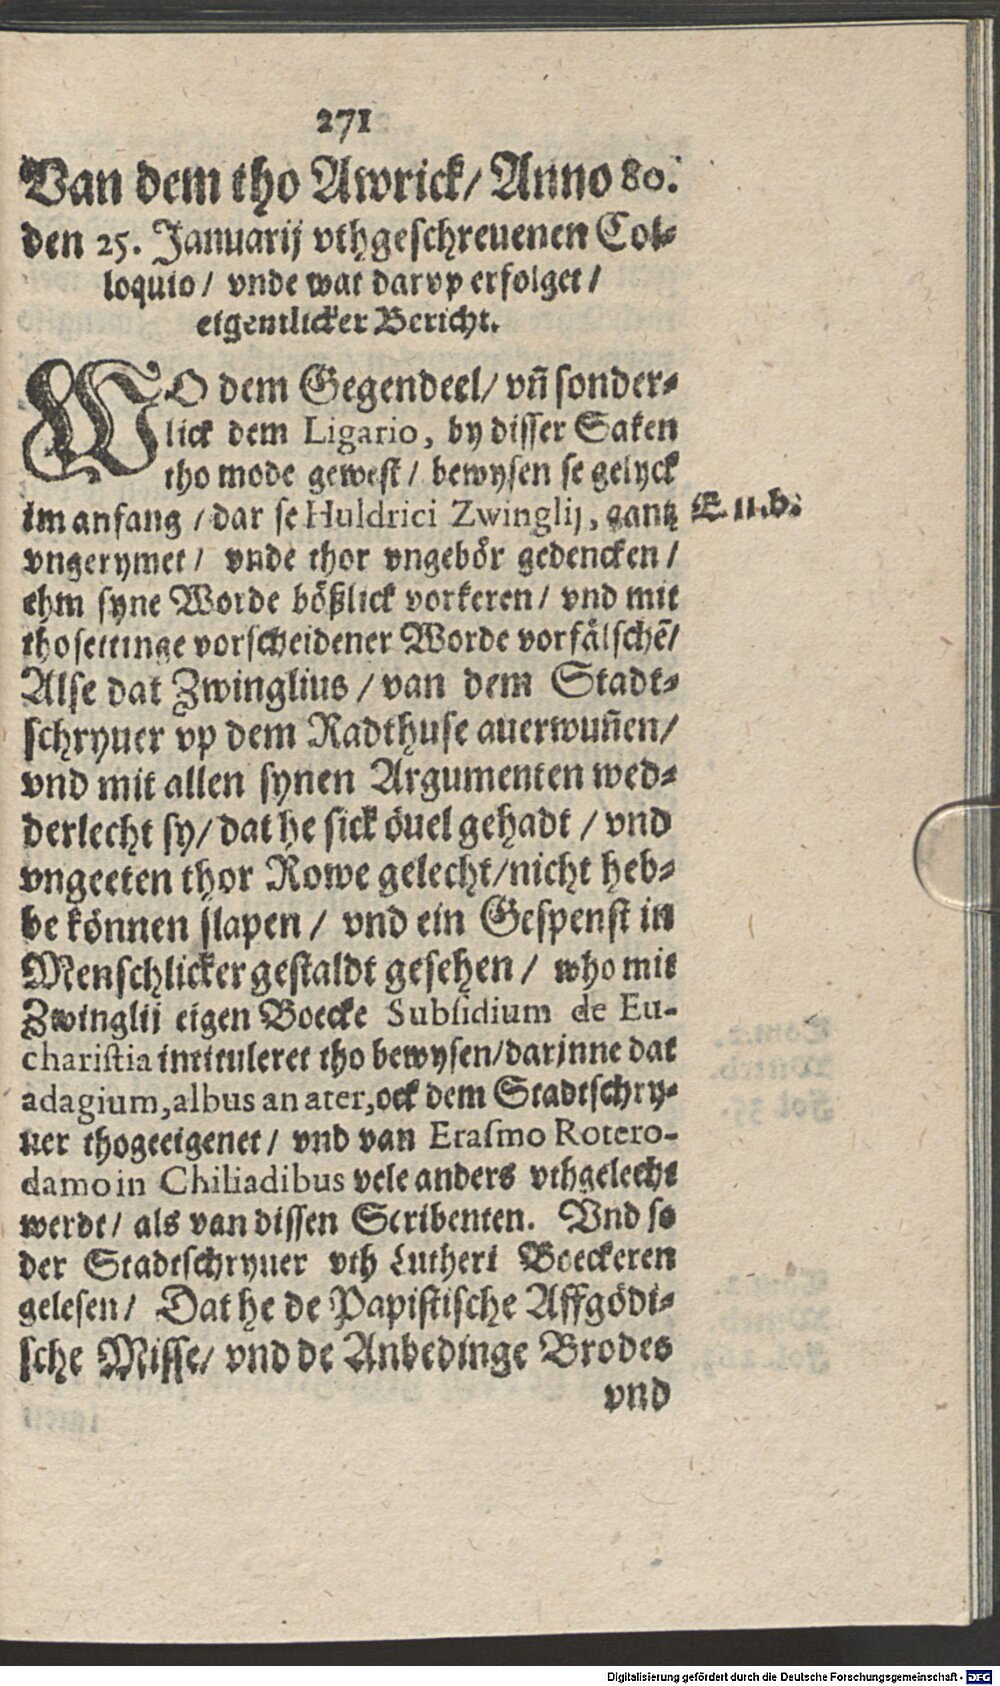 271
Van dem tho Awrick/ Anno 80.
den 25. Januarij vthgeschreuenen Col-
loquio/ vnde wat darvp erfolget/
eigentlicker Bericht.
WO dem Gegendeel/ vñ sonder-
lick dem Ligario, by disser Saken
tho mode gewest/ bewysen se gelyck
im anfang/ dar se Huldrici Zwinglij, gantz
E. 11. b.
vngerymet/ vnde thor vngebör gedencken/
ehm syne Worde bößlick vorkeren/ vnd mit
thosettinge vorscheidener Worde vorfälschẽ/
Alse dat Zwinglius/ van dem Stadt-
schryuer vp dem Radthuse auerwuñen/
vnd mit allen synen Argumenten wed-
derlecht sy/ dat he sick öuel gehadt/ vnd
vngeeten thor Rowe gelecht/ nicht heb-
be können slapen/ vnd ein Gespenst in
Menschlicker gestaldt gesehen/ who mit
Zwinglij eigen Boecke Subsidium de Eu-
charistia intituleret tho bewysen/ darinne dat
adagium, albus an ater, ock dem Stadtschry-
uer thogeeigenet/ vnd van Erasmo Rotero-
damo in Chiliadibus vele anders vthgelecht
werdt/ als van dissen Scribenten. Vnd so
der Stadtschryuer vth Lutheri Boeckeren
gelesen/ Dat he de Papistische Affgödi-
sche Misse/ vnd de Anbedinge Brodes
vnd
Digitalisierung gefördert durch die Deutsche Forschungsgemeinschaft - DFG